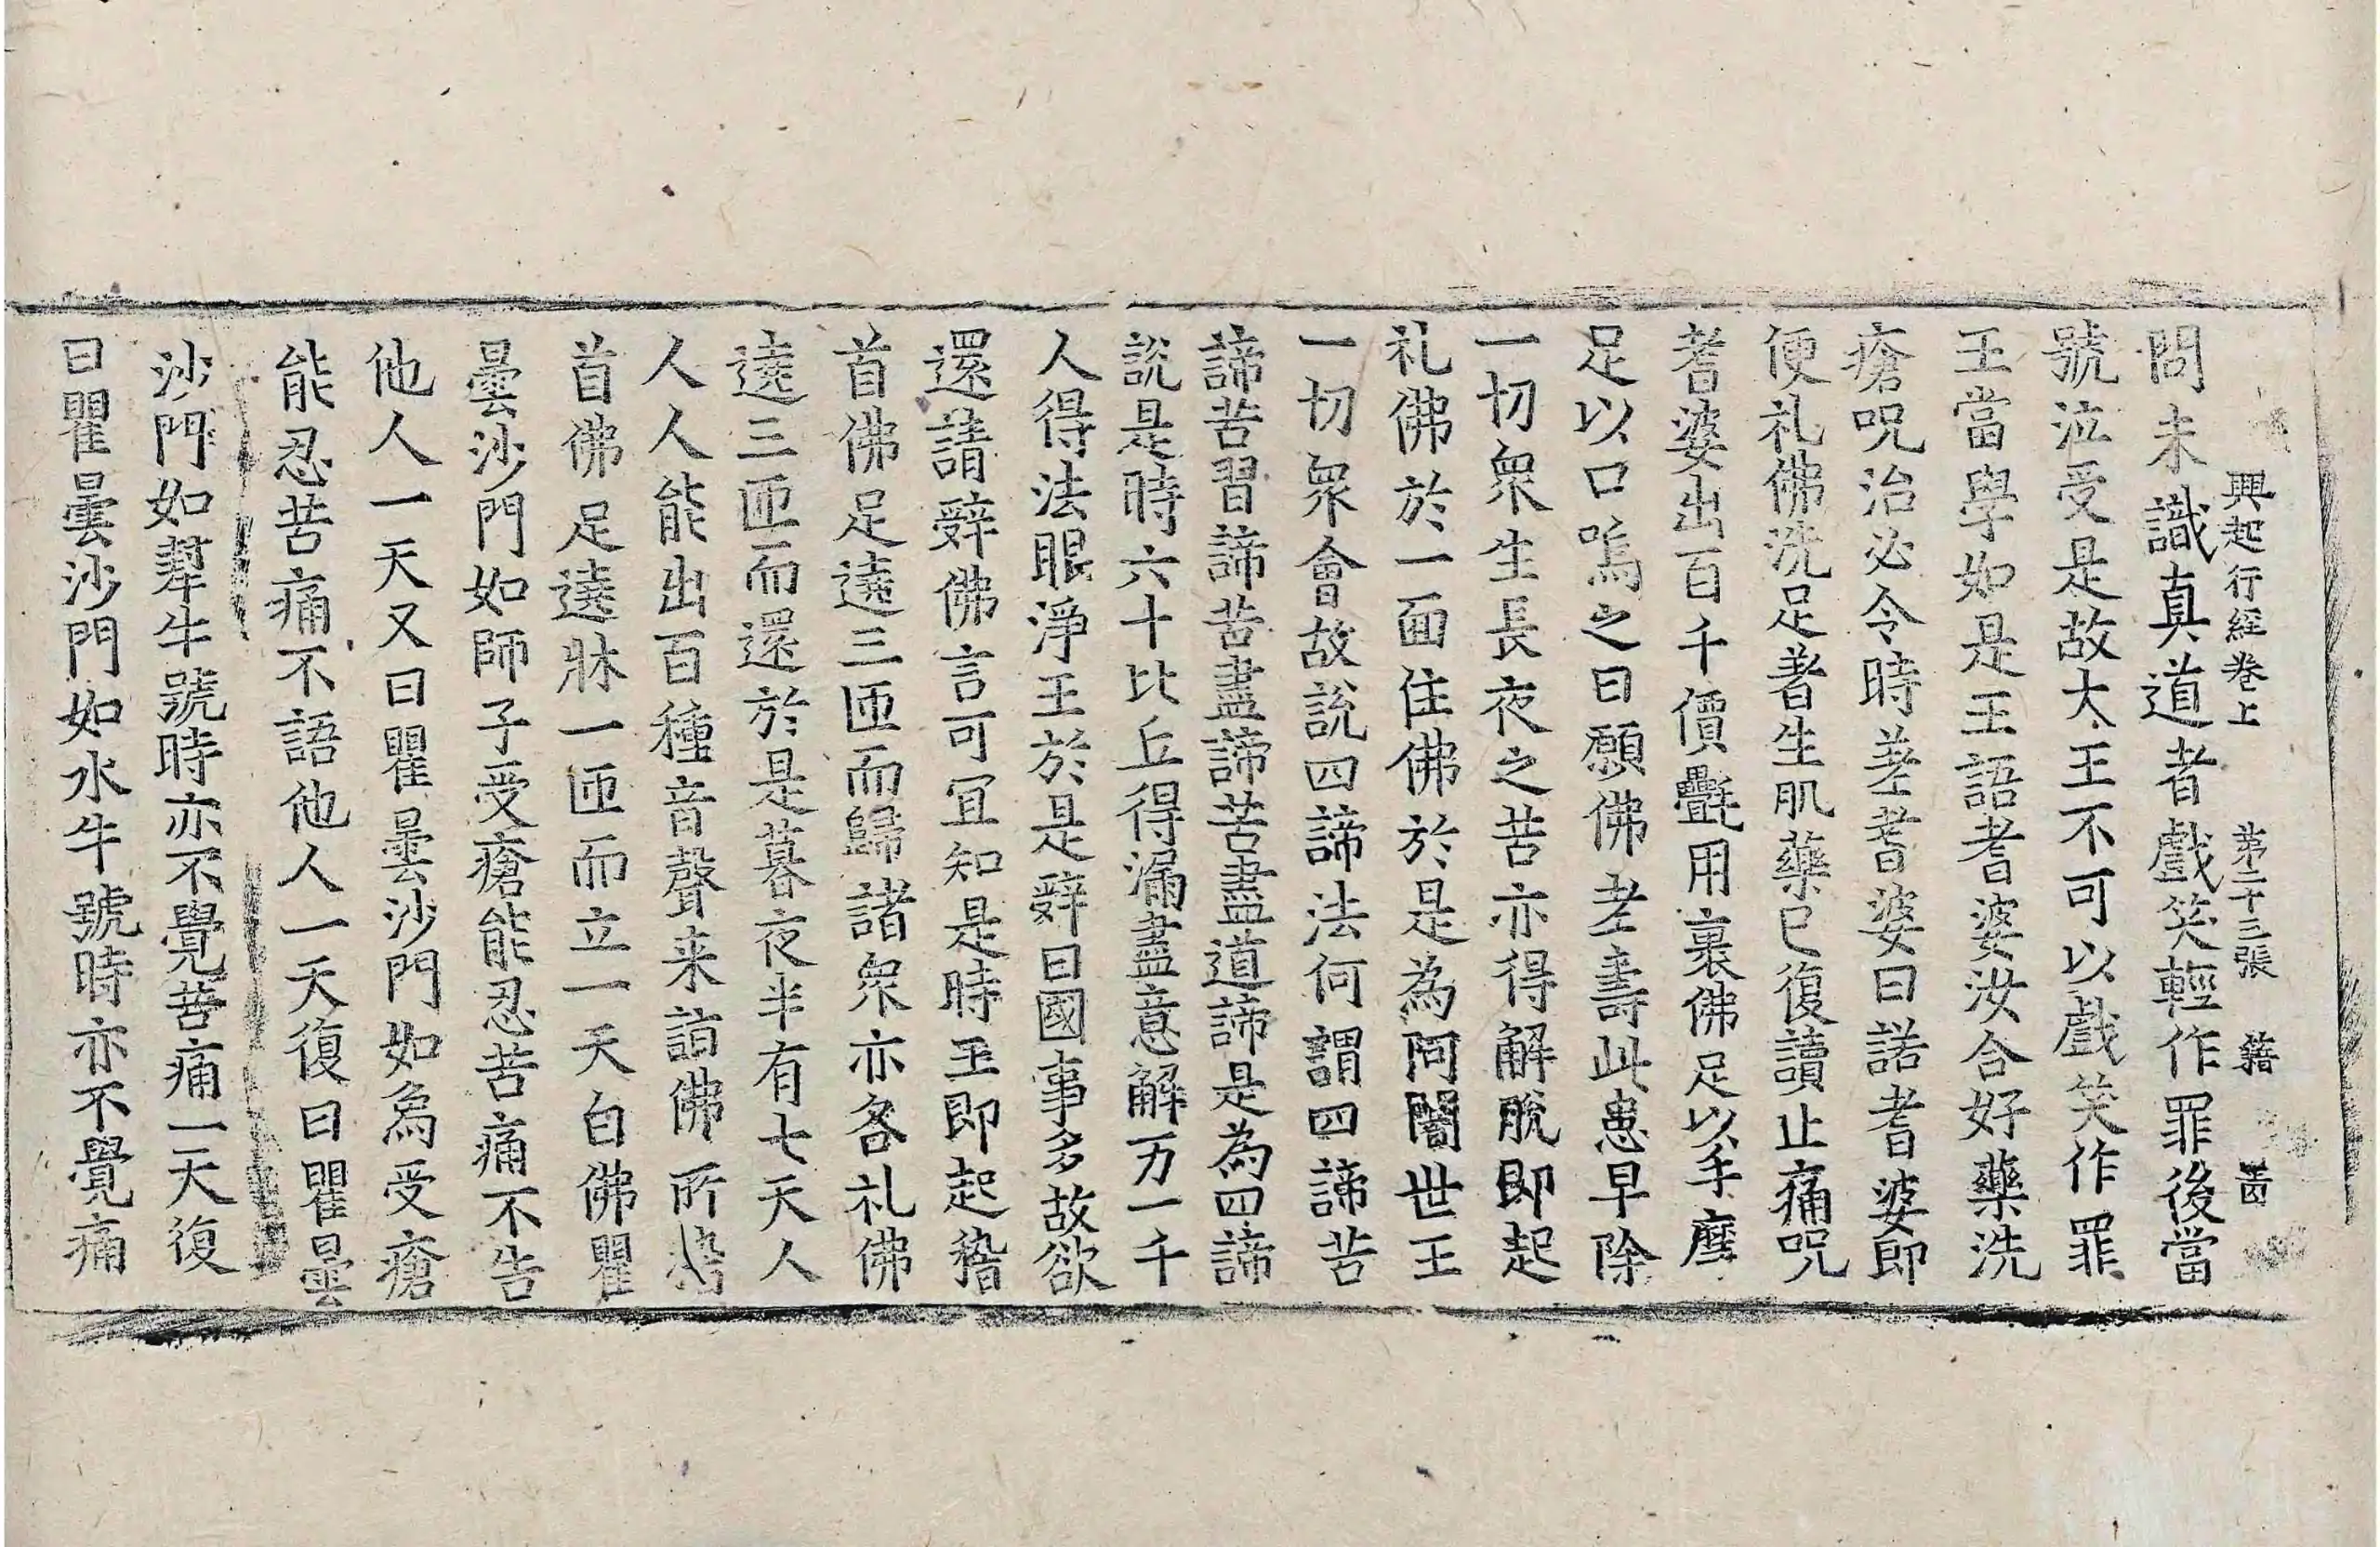 興起行經卷上 第二十三張 籍
問未識真道者戲笑輕作罪後當
號泣受是故大王不可以戲笑作罪
王當學如是王語耆婆汝合好藥洗
瘡呪治必令時差耆婆曰諾耆婆即
便礼佛洗足著生肌藥已復讀止痛呪
耆婆出百千價㲲用裹佛足以手摩
足以口嗚之曰願佛老壽此患早除
一切衆生長夜之苦亦得解脫即起
礼佛於一面住佛於是為阿闍世王
一切衆會故說四諦法何謂四諦苦
諦苦習諦苦盡諦苦盡道諦是為四諦
說是時六十比丘得漏盡意解万一千
人得法眼淨王於是辭曰國事多故欲
還請辭佛言可宜知是時王即起稽
首佛足遶三匝而歸諸衆亦各礼佛
遶三匝而還於是暮夜半有七天人
人人能出百種音聲来詣佛所稽
首佛足遶牀一匝而立一天白佛瞿
曇沙門如師子受瘡能忍苦痛不告
他人一天又曰瞿曇沙門如為受瘡
能忍苦痛不語他人一天復曰瞿曇
沙門如犎牛號時亦不覺苦痛一天復
曰瞿曇沙門如水牛號時亦不覺痛